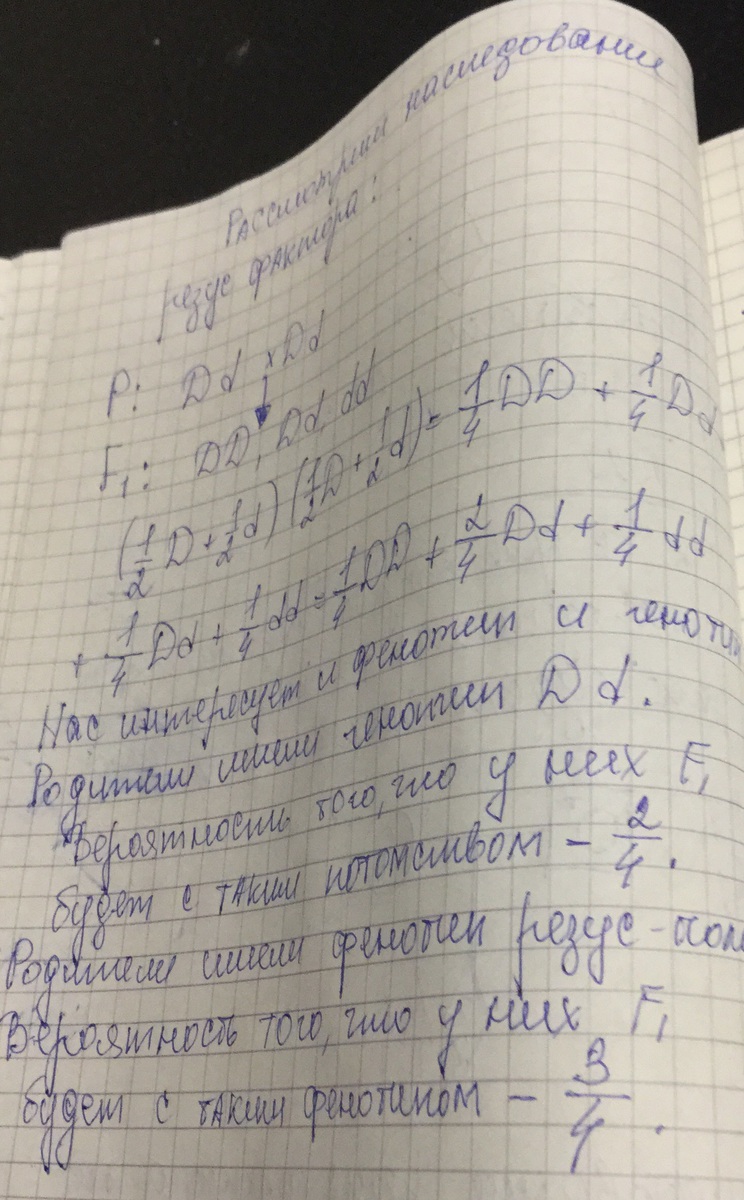 Рассмотрим наследование
резус фактора:
P: Dd x Dd
F₁: DD, Dd, dd
(1/2 D + 1/2 d) (1/2 D + 1/2 d) = 1/4 DD + 1/4 Dd
+ 1/4 Dd + 1/4 dd = 1/4 DD + 2/4 Dd + 1/4 dd
Нас интересует и фенотип и геноти
Родители имели генотип Dd.
Вероятность того, что у них F₁
будет с таким потомством - 2/4.
Родители имели фенотип резус-пол
Вероятность того, что у них F₁
будет с таким фенотипом - 3/4.